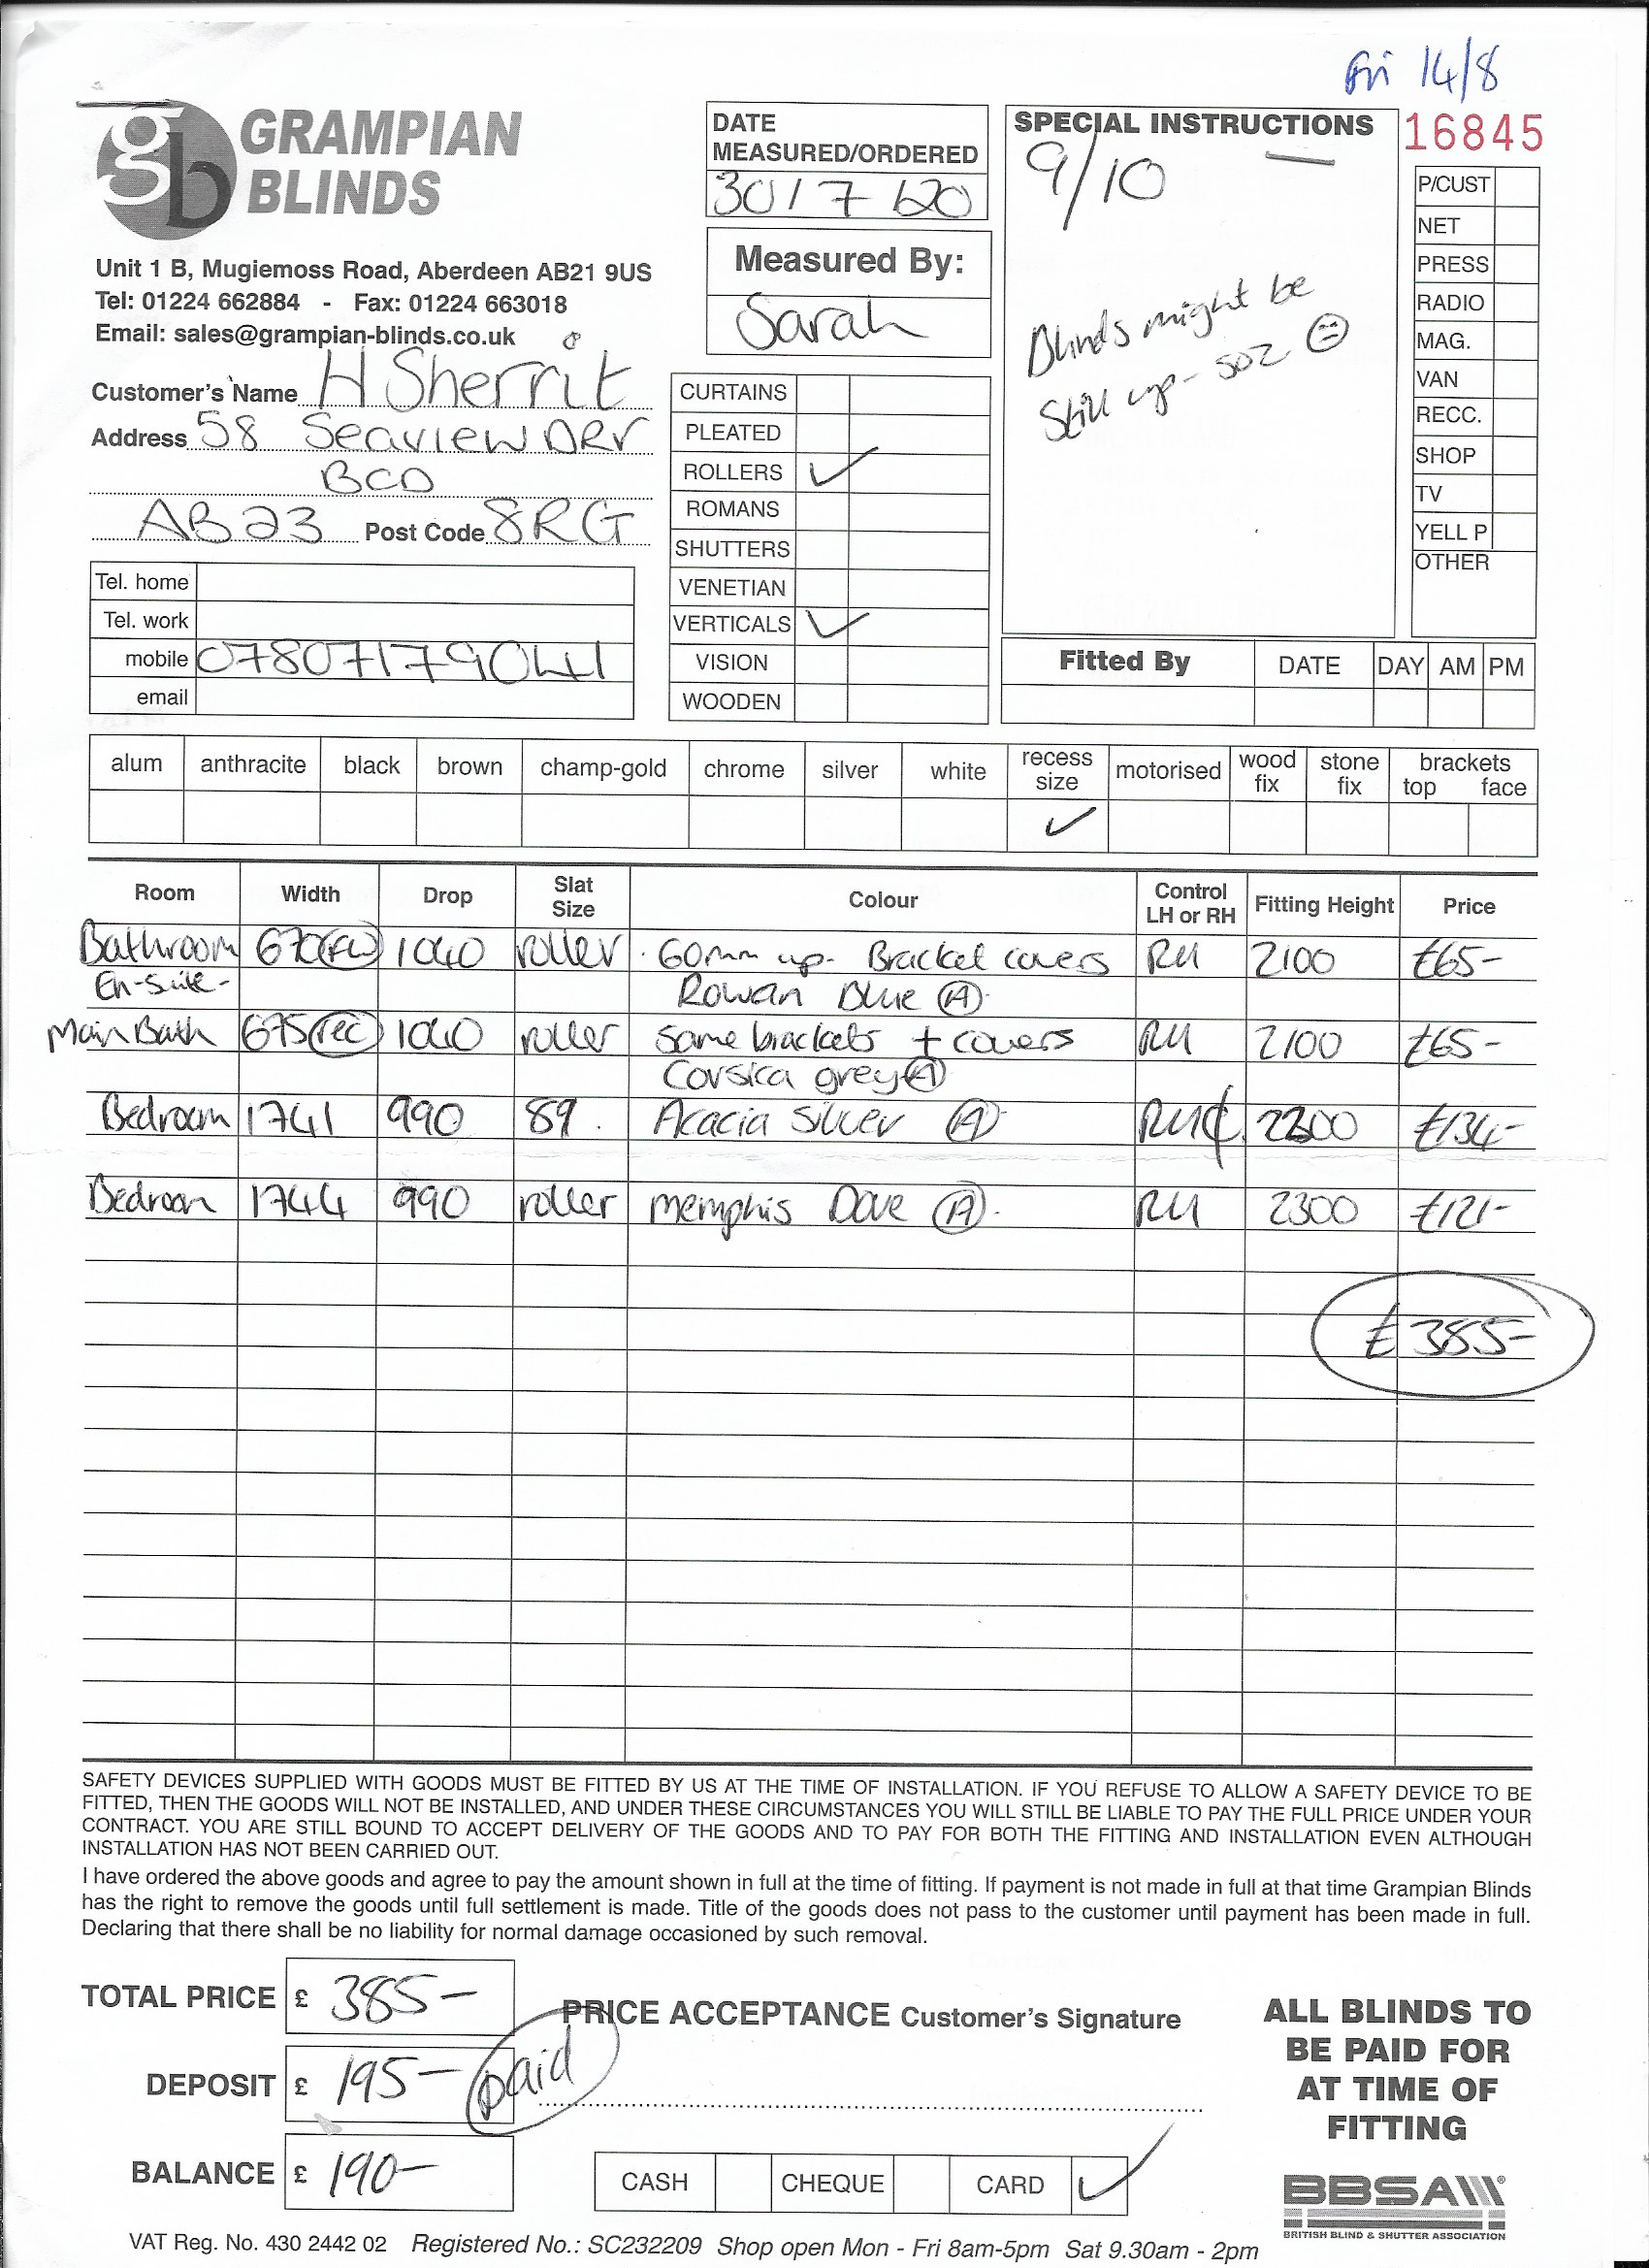 Fri 14/8
gb GRAMPIAN
BLINDS
Unit 1 B, Mugiemoss Road, Aberdeen AB21 9US
Tel: 01224 662884 - Fax: 01224 663018
Email: sales@grampian-blinds.co.uk
DATE
MEASURED/ORDERED
30/7/20
Measured By:
Sarah
SPECIAL INSTRUCTIONS
9/10
Blinds might be
still up - soz
16845
P/CUST
NET
PRESS
RADIO
MAG.
VAN
RECC.
SHOP
TV
YELL P
OTHER
Customer's Name H Sherrit
Address 58 Seaview DRV
BCD
AB23 Post Code 8RG
Tel. home
Tel. work
mobile 07807179041
email
CURTAINS
PLEATED
ROLLERS ✓
ROMANS
SHUTTERS
VENETIAN
VERTICALS ✓
VISION
WOODEN
Fitted By DATE DAY AM PM
alum anthracite black brown champ-gold chrome silver white recess size motorised wood fix stone fix brackets top face
✓
Room Width Drop Slat Size Colour Control LH or RH Fitting Height Price
Bathroom 670 1040 roller 60mm up - Bracket covers RH 2100 £65-
En-Suite- Rowan Blue A
Main Bath 675 rec 1040 roller same brackets + covers RH 2100 £65-
Corsica grey A
Bedroom 1741 990 89 Acacia Silver A 2300 £134-
Bedroom 1744 990 roller memphis Dove A RH 2300 £121-
£385-
SAFETY DEVICES SUPPLIED WITH GOODS MUST BE FITTED BY US AT THE TIME OF INSTALLATION. IF YOU REFUSE TO ALLOW A SAFETY DEVICE TO BE
FITTED, THEN THE GOODS WILL NOT BE INSTALLED, AND UNDER THESE CIRCUMSTANCES YOU WILL STILL BE LIABLE TO PAY THE FULL PRICE UNDER YOUR
CONTRACT. YOU ARE STILL BOUND TO ACCEPT DELIVERY OF THE GOODS AND TO PAY FOR BOTH THE FITTING AND INSTALLATION EVEN ALTHOUGH
INSTALLATION HAS NOT BEEN CARRIED OUT.
I have ordered the above goods and agree to pay the amount shown in full at the time of fitting. If payment is not made in full at that time Grampian Blinds
has the right to remove the goods until full settlement is made. Title of the goods does not pass to the customer until payment has been made in full.
Declaring that there shall be no liability for normal damage occasioned by such removal.
TOTAL PRICE £ 385-
PRICE ACCEPTANCE Customer's Signature
DEPOSIT £ 195- paid
BALANCE £ 190-
CASH CHEQUE CARD ✓
ALL BLINDS TO
BE PAID FOR
AT TIME OF
FITTING
BBSA
BRITISH BLIND & SHUTTER ASSOCIATION
VAT Reg. No. 430 2442 02 Registered No.: SC232209 Shop open Mon - Fri 8am-5pm Sat 9.30am - 2pm